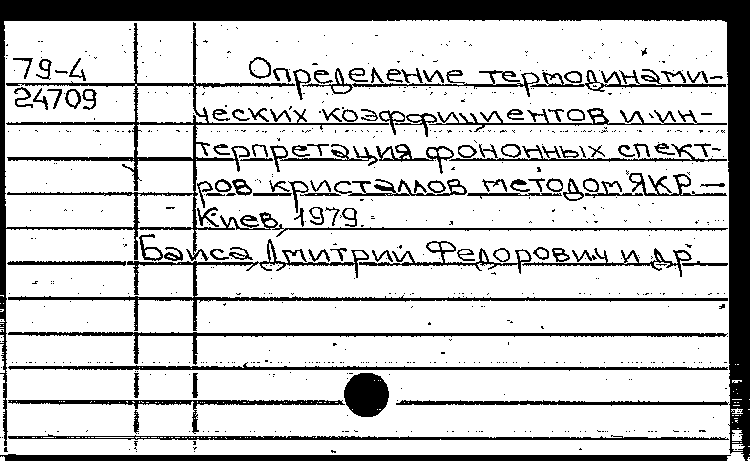 79-4 Определение термодинами-
24709 ческих коэффициентов и ин-
терпретация фононных спект-
ров кристаллов методом ЯКР. —
Киев, 1979.
Баиса Дмитрий Федорович и др.